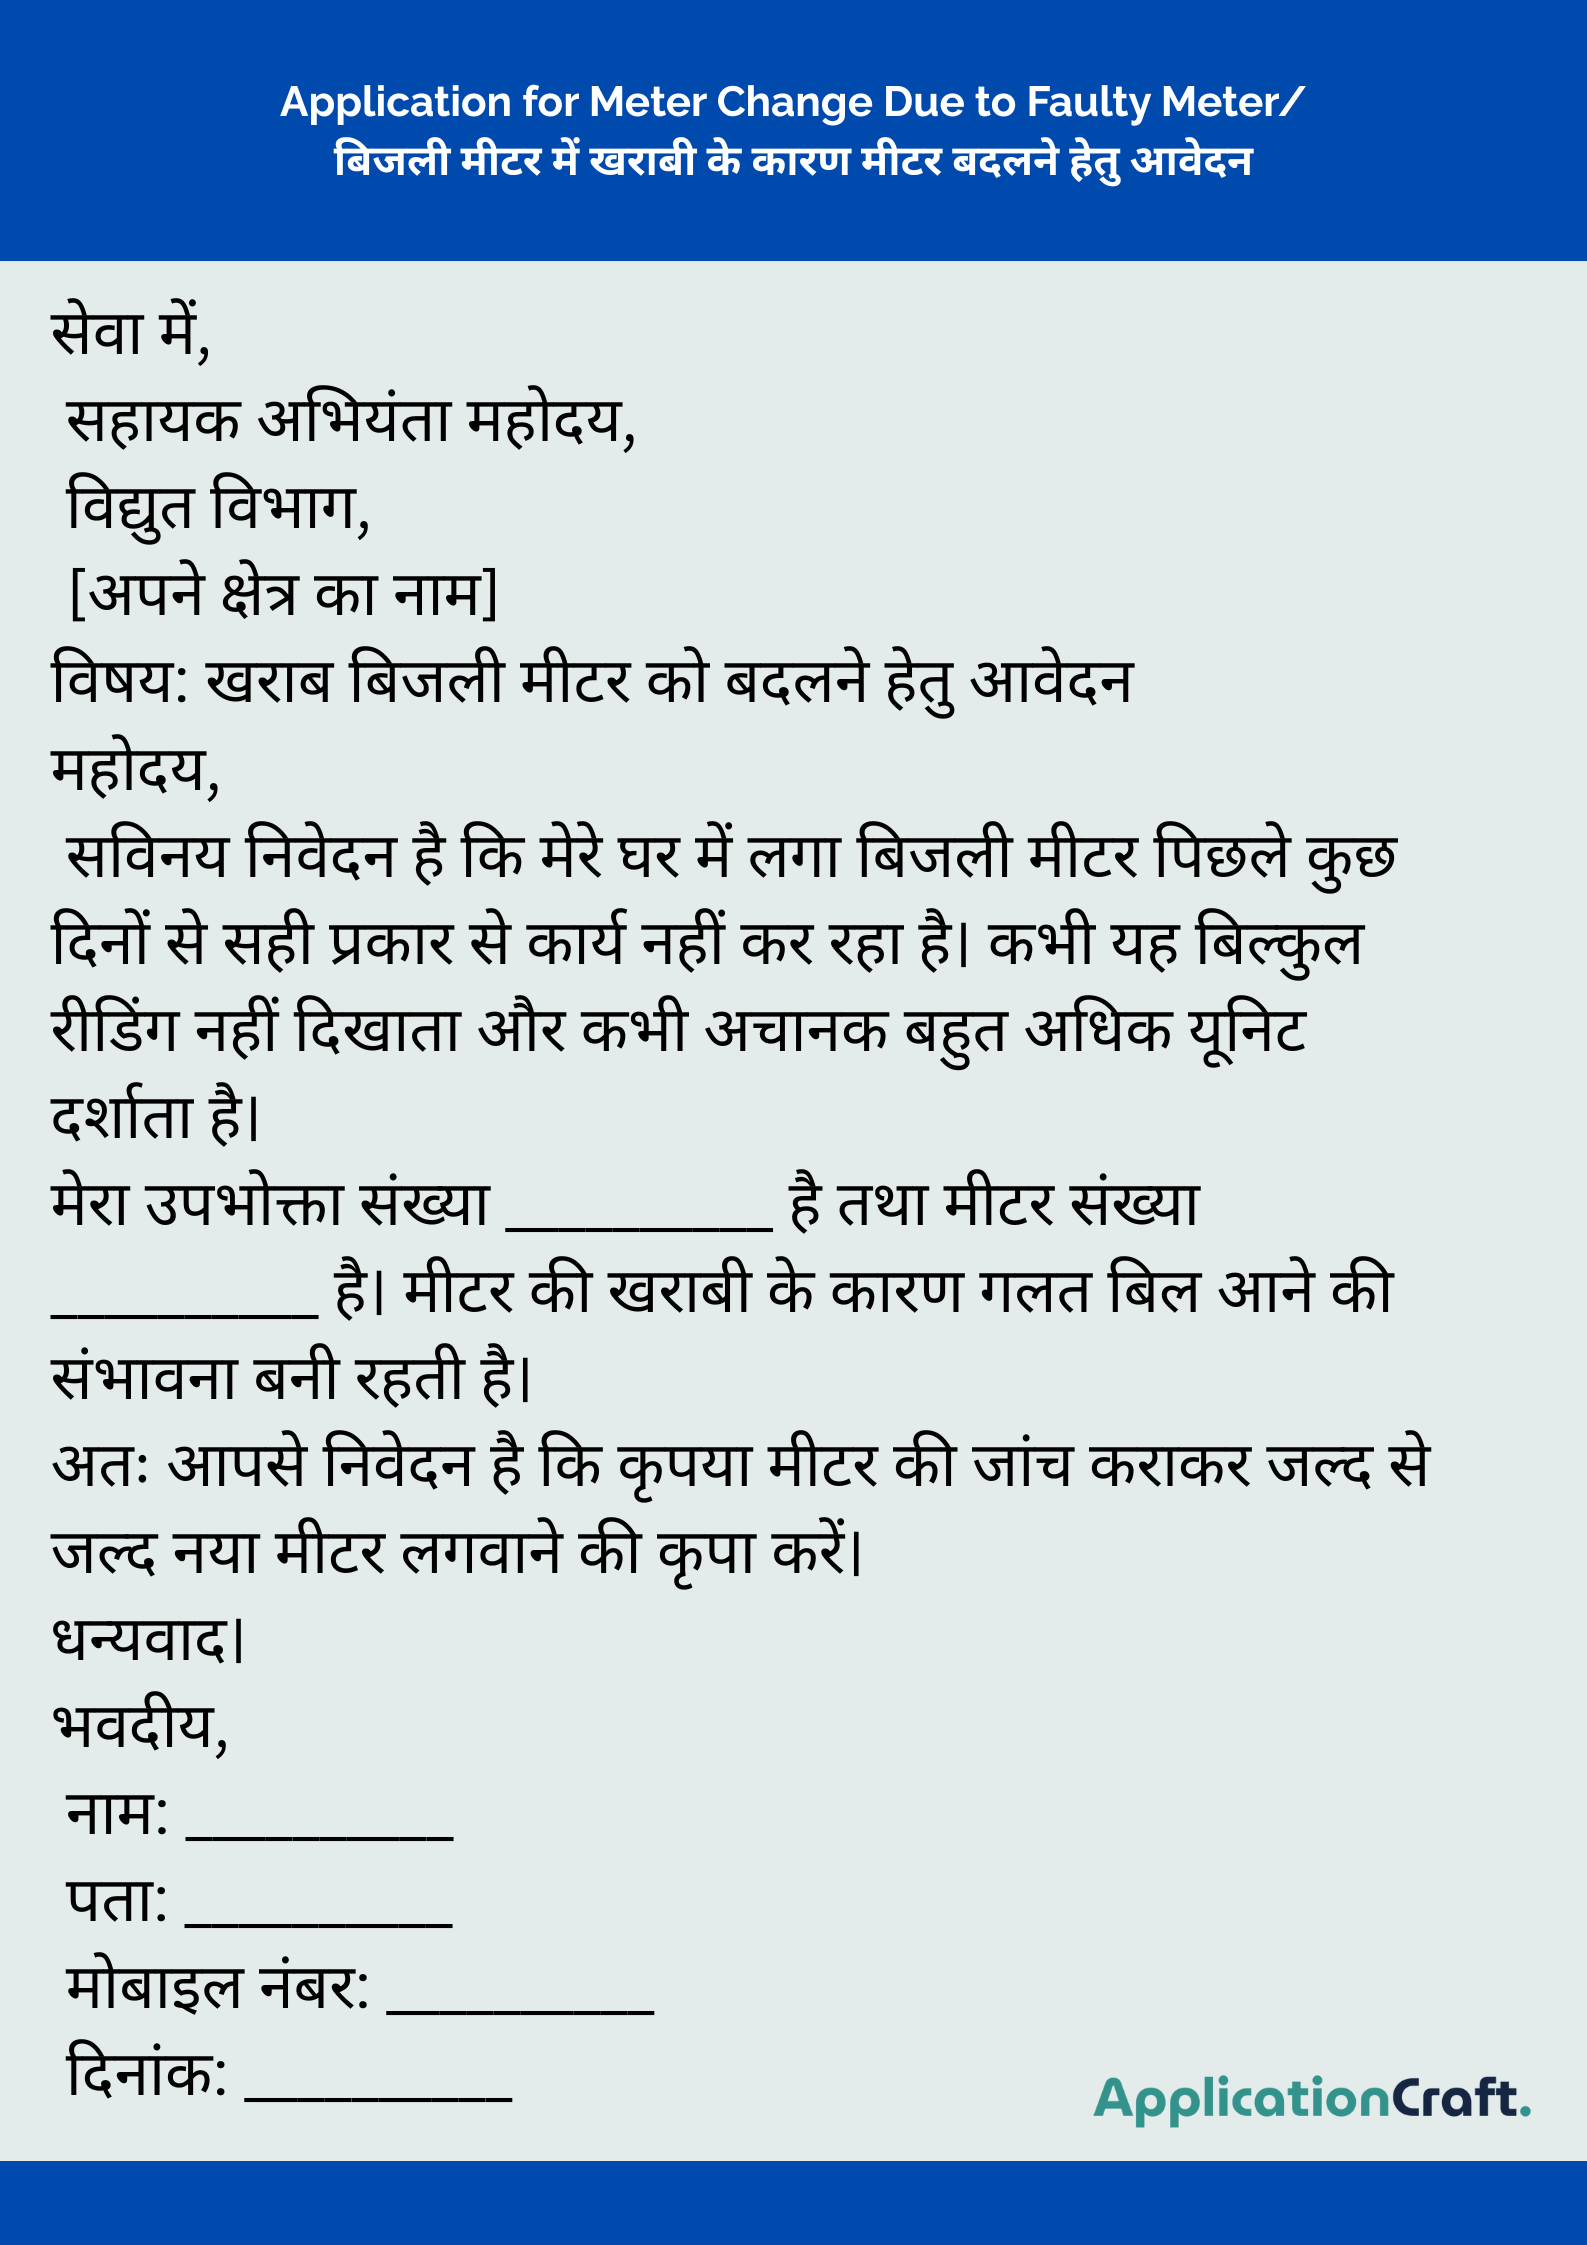 Application for Meter Change Due to Faulty Meter/
बिजली मीटर में खराबी के कारण मीटर बदलने हेतु आवेदन
सेवा में,
सहायक अभियंता महोदय,
विद्युत विभाग,
[अपने क्षेत्र का नाम]
विषय: खराब बिजली मीटर को बदलने हेतु आवेदन
महोदय,
सविनय निवेदन है कि मेरे घर में लगा बिजली मीटर पिछले कुछ
दिनों से सही प्रकार से कार्य नहीं कर रहा है। कभी यह बिल्कुल
रीडिंग नहीं दिखाता और कभी अचानक बहुत अधिक यूनिट
दर्शाता है।
मेरा उपभोक्ता संख्या __________ है तथा मीटर संख्या
__________ है। मीटर की खराबी के कारण गलत बिल आने की
संभावना बनी रहती है।
अतः आपसे निवेदन है कि कृपया मीटर की जांच कराकर जल्द से
जल्द नया मीटर लगवाने की कृपा करें।
धन्यवाद।
भवदीय,
नाम: __________
पता: __________
मोबाइल नंबर: __________
दिनांक: __________
ApplicationCraft.